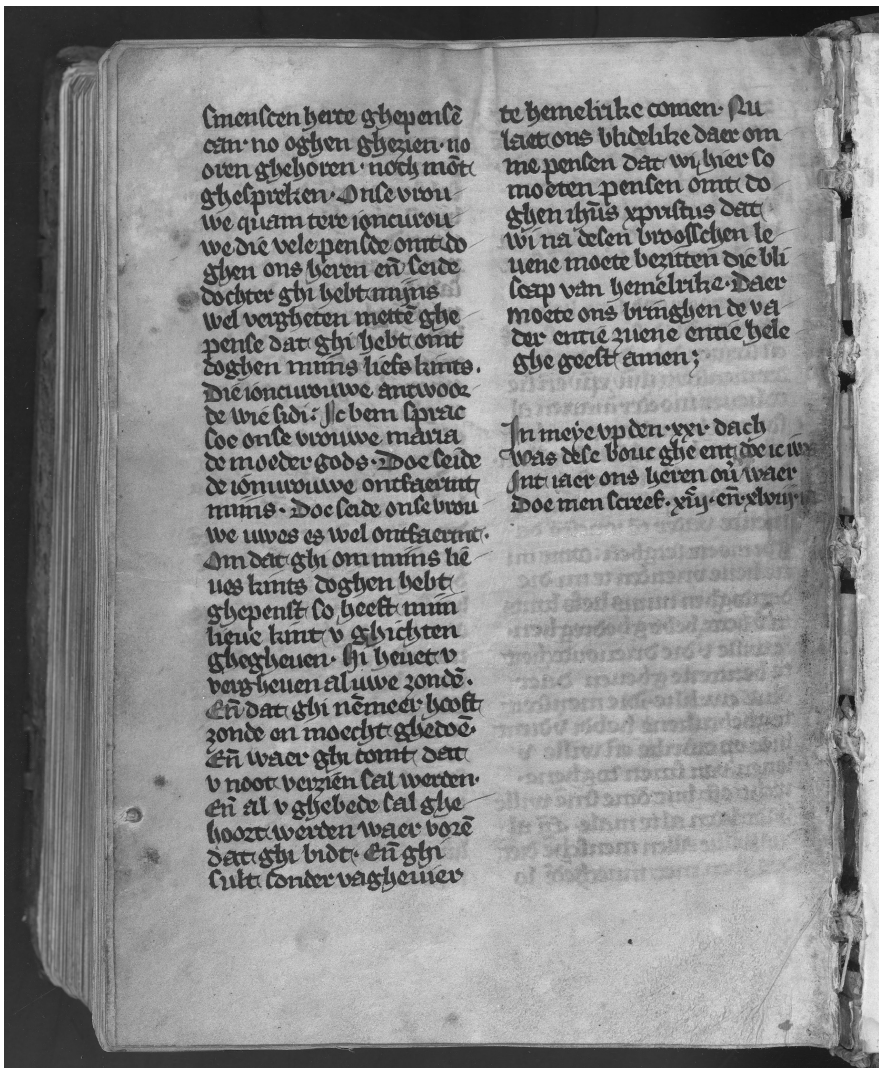 smenscen herte ghepensē
can· no oghen ghezien· no
oren ghehoren· noch mōt
ghespreken· Onse vrou
we quam tere ioncurou
we die vele pensde omt do
ghen ons heren en̄ seide
dochter ghi hebt mijns
wel vergheten mettē ghe
pense dat ghi hebt omt
doghen mijns liefs kints.
Die ioncurouwe antwoor
de wie sidi: Ic bem sprac
soe onse vrouwe maria
de moeder gods· Doe seide
de ionurouwe ontfaermt
mijns· Doe seide onse vrou
we uwes es wel ontfaermt·
Om dat ghi om mijns lie
ues kints doghen hebt
ghepenst so heeft mijn
lieue kint v ghichten
ghegheuen· Hi heuet v
vergheuen al uwe zondē·
En̄ dat ghi nēmeer hooft
zonde en moecht ghedoē·
En̄ waer ghi comt dat
v noot verzien sal werden·
En̄ al v ghebede sal ghe
hoort werden waer vorē
dat ghi bidt· En̄ ghi
sult sonder vagheuier
te hemelrike comen· Nu
laet ons blidelike daer om
me pensen dat wi hier so
moeten pensen omt do
ghen ihūs xpristus dat
wi na desen broosschen le
uene moete bezitten die bli
scap van hemelrike· Daer
moete ons bringhen de va
der entie zuene entie hele
ghe geest amen;
In meye vp den· xxi· dach
was dese bouc ghe ent doe ic
Int iaer ons heren waer
Doe men screef· en̄· xlviii·